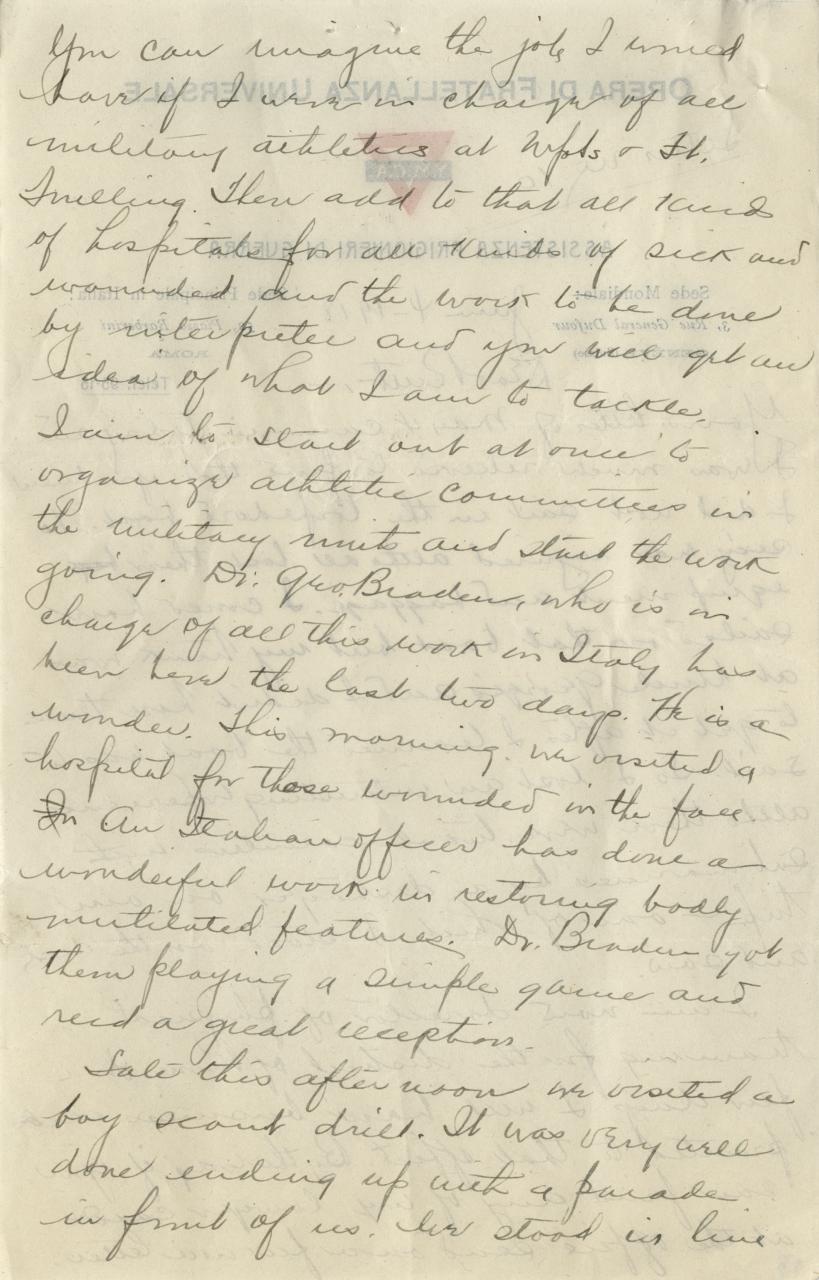 You can imagine the job I would
have if I were in charge of all
military athletics at Mpls & Ft.
Snelling. Then add to that all kinds
of hospitals for all kinds of sick and
wounded and the work to be done
by interpreter and you will get an
idea of what I am to tackle.
I am to start out at once to
organize athletic committees in
the military units and start the work
going. Dr. Geo. Braden, who is in
charge of all this work in Italy has
been here the last two days. He is a
wonder. This morning we visited a
hospital for those wounded in the face.
An Italian officer has done a
wonderful work in restoring badly
mutilated features. Dr. Braden got
them playing a simple game and
recd a great reception.
Late this afternoon we visited a
boy scout drill. It was very well
done ending up with a parade
in front of us. We stood in line
OPERA DI FRATELLANZA UNIVERSALE
Y.M.C.A.
ASSISTENZA PRIGIONIERI DI GUERRA
Sede Mondiale:
3, Rue General Dufour
ROMA